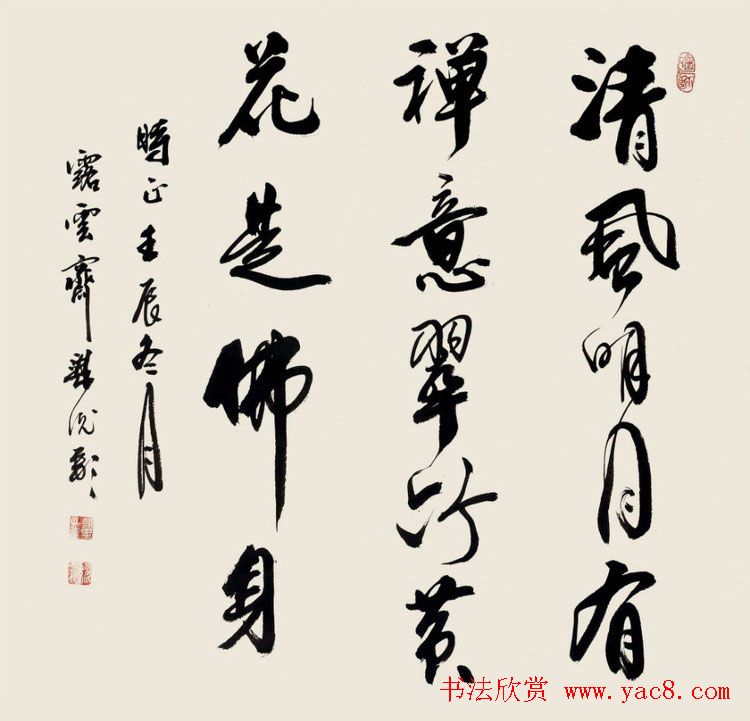 清風明月有
禪意翠竹黄
花是佛身
時正壬辰冬月
露雲齋
书法欣赏 www.yac8.com